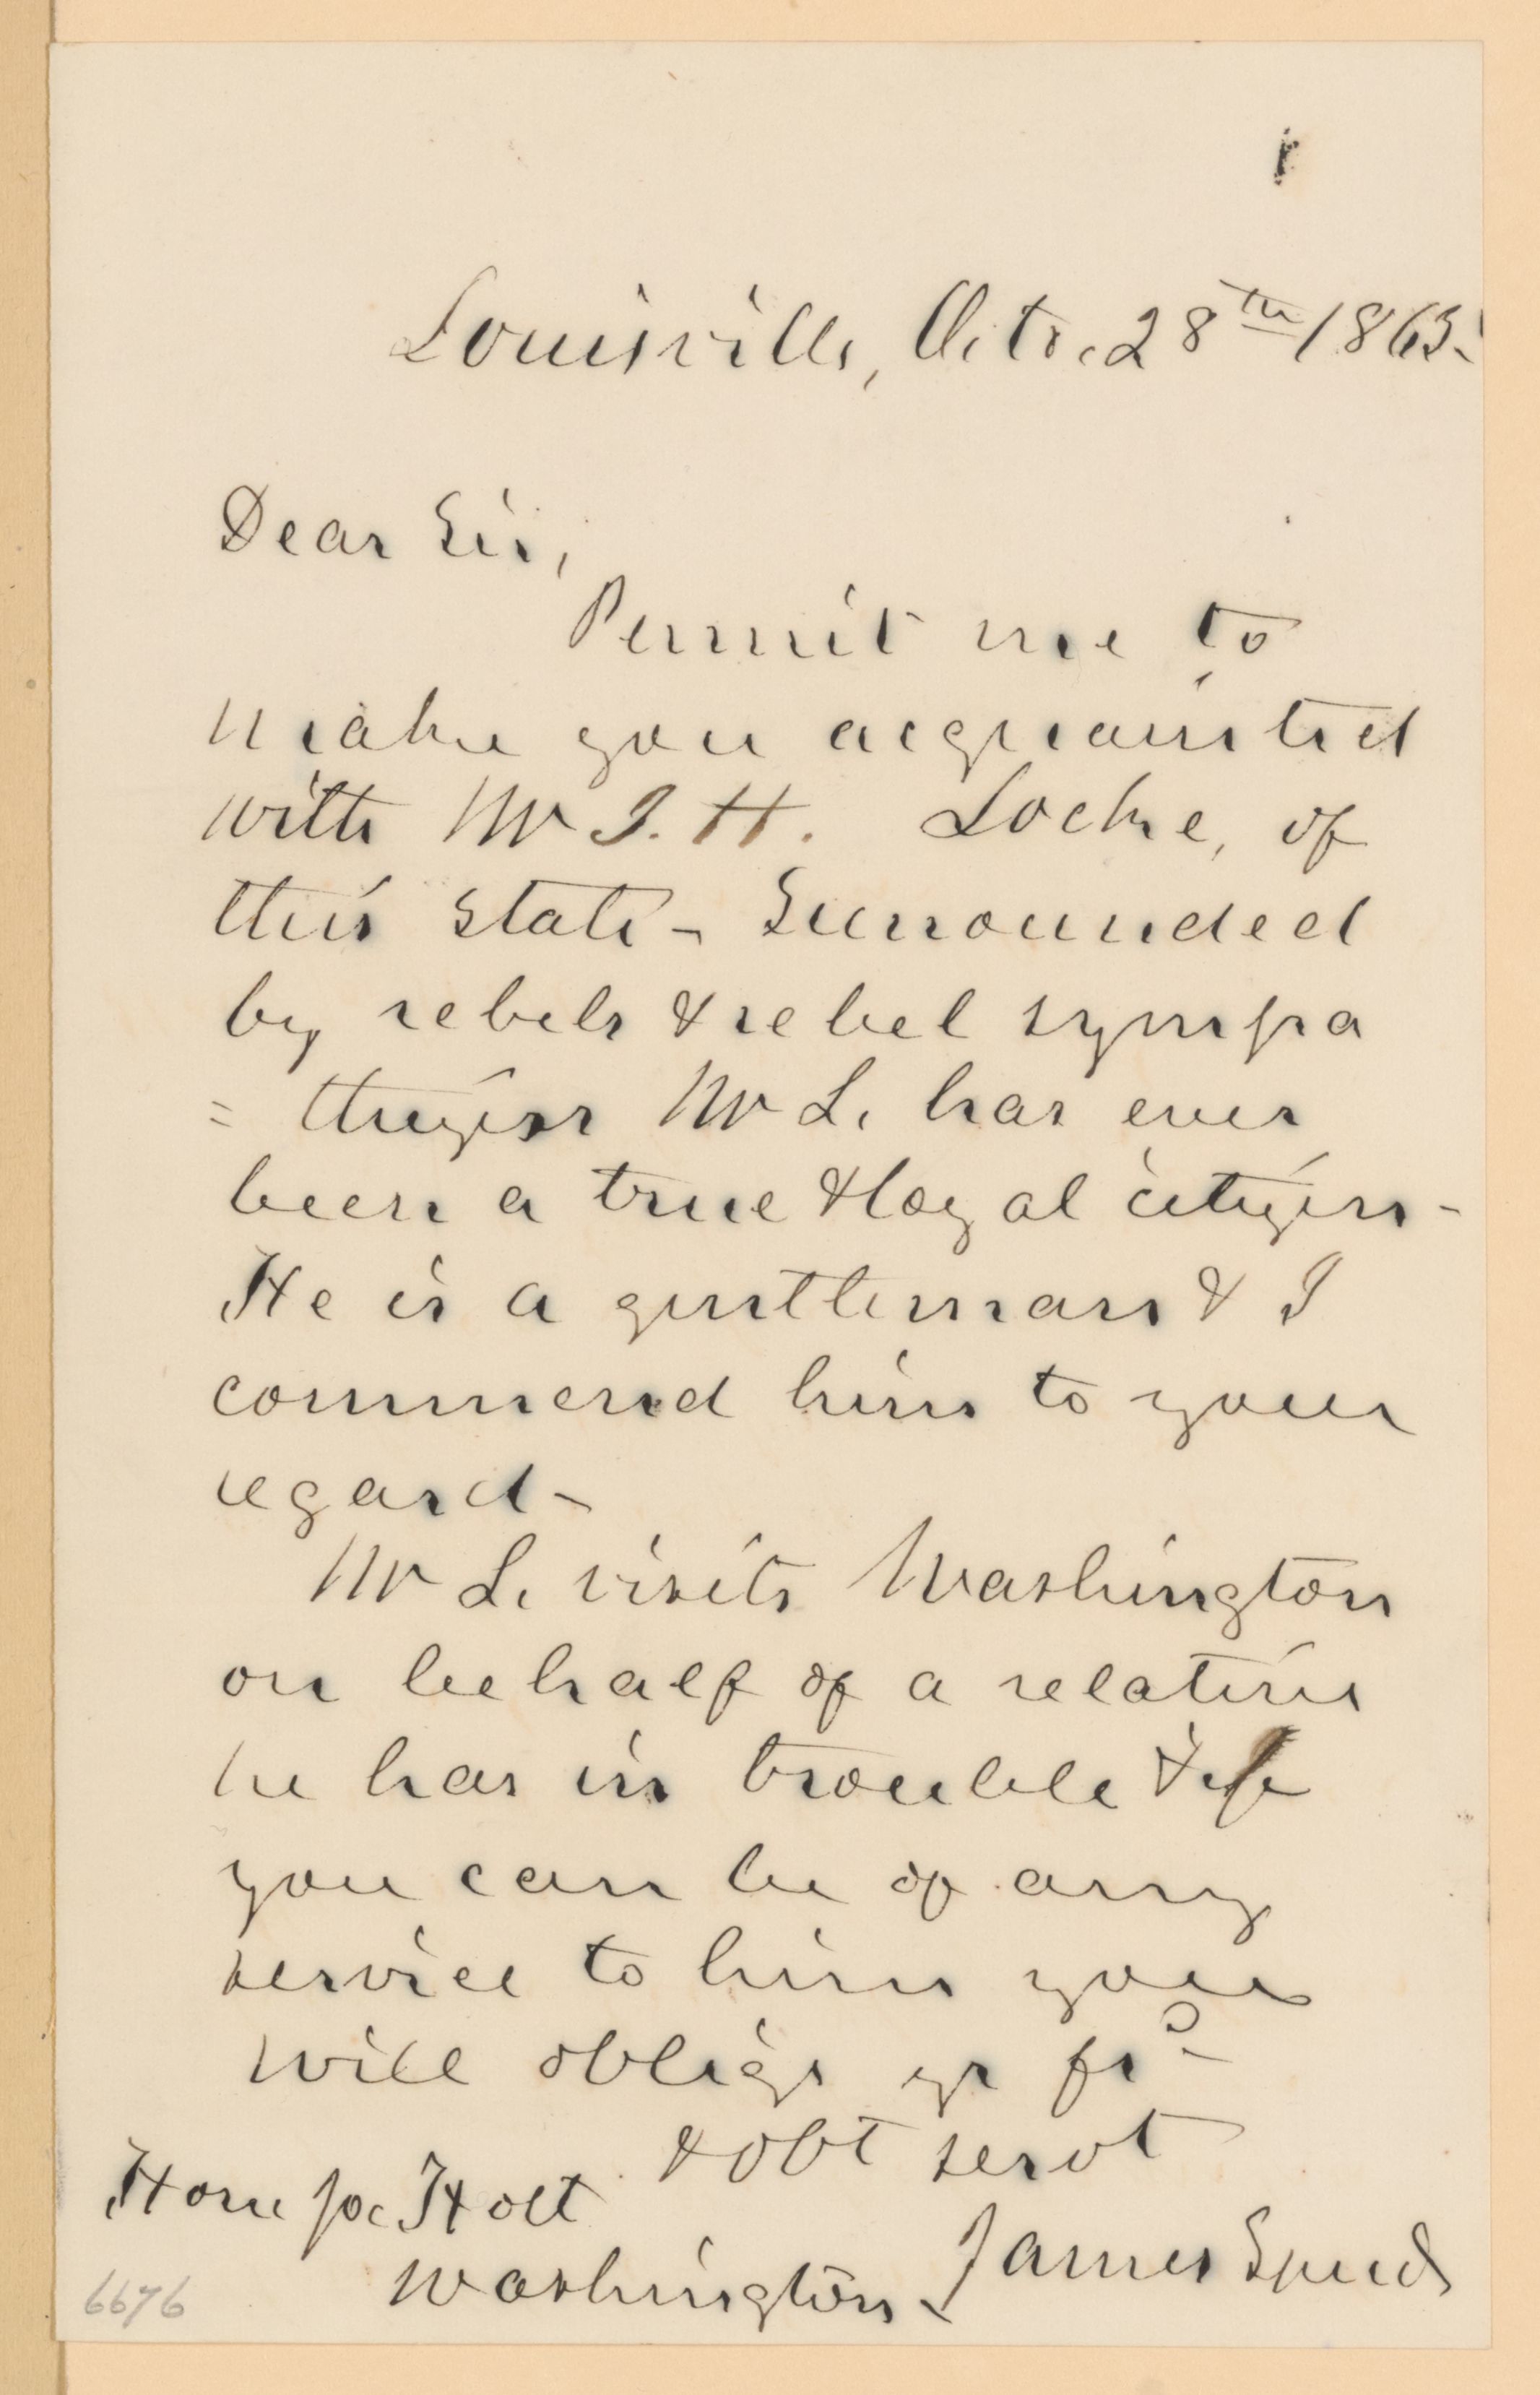 Louisville, Octo. 28th 1863.
Dear Sir,
Permit me to
make you acquainted
with Mr J. H. Locke, of
this State - Surrounded
by rebels & rebel sympa
= thizers Mr L. has ever
been a true & loyal citizen -
He is a gentleman & I
commend him to your
regard -
Mr L. visits Washington
on behalf of a relative
he has in trouble & if
you can be of any
service to him you
will oblige yr fr
& obt servt
James Speed
Hon Jos. Holt
Washington -
6676